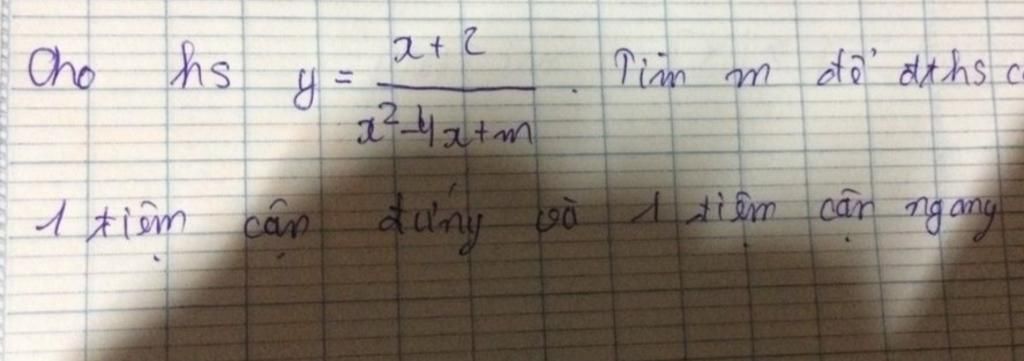 Cho hs y = \frac{x+2}{x^2-4x+m}. Tìm m để đths c
1 tiệm cận đứng và 1 tiệm cận ngang